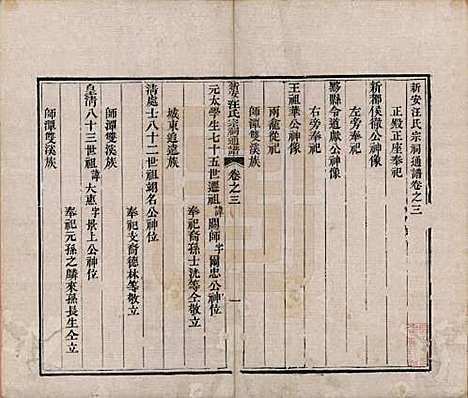 新安汪氏宗祠通譜卷之三
正殿正座奉祀
新都侯徹公神像
左旁奉祀
黟縣令道獻公神像
右旁奉祀
王祖華公神像
兩龕從祀
師潭雙溪族
新安汪氏宗祠通譜 卷之三 一
元太學生七十五世遷祖諱關師字爾忠公神位
奉祀裔孫士洸等仝敬立
城東道遠族
清處士八十二世祖翊名公神位
奉祀文裔德林等敬立
師潭雙溪族
皇清八十三世祖諱大惠字景上公神位
奉祀元孫之麟來孫長生仝立
師潭雙溪族